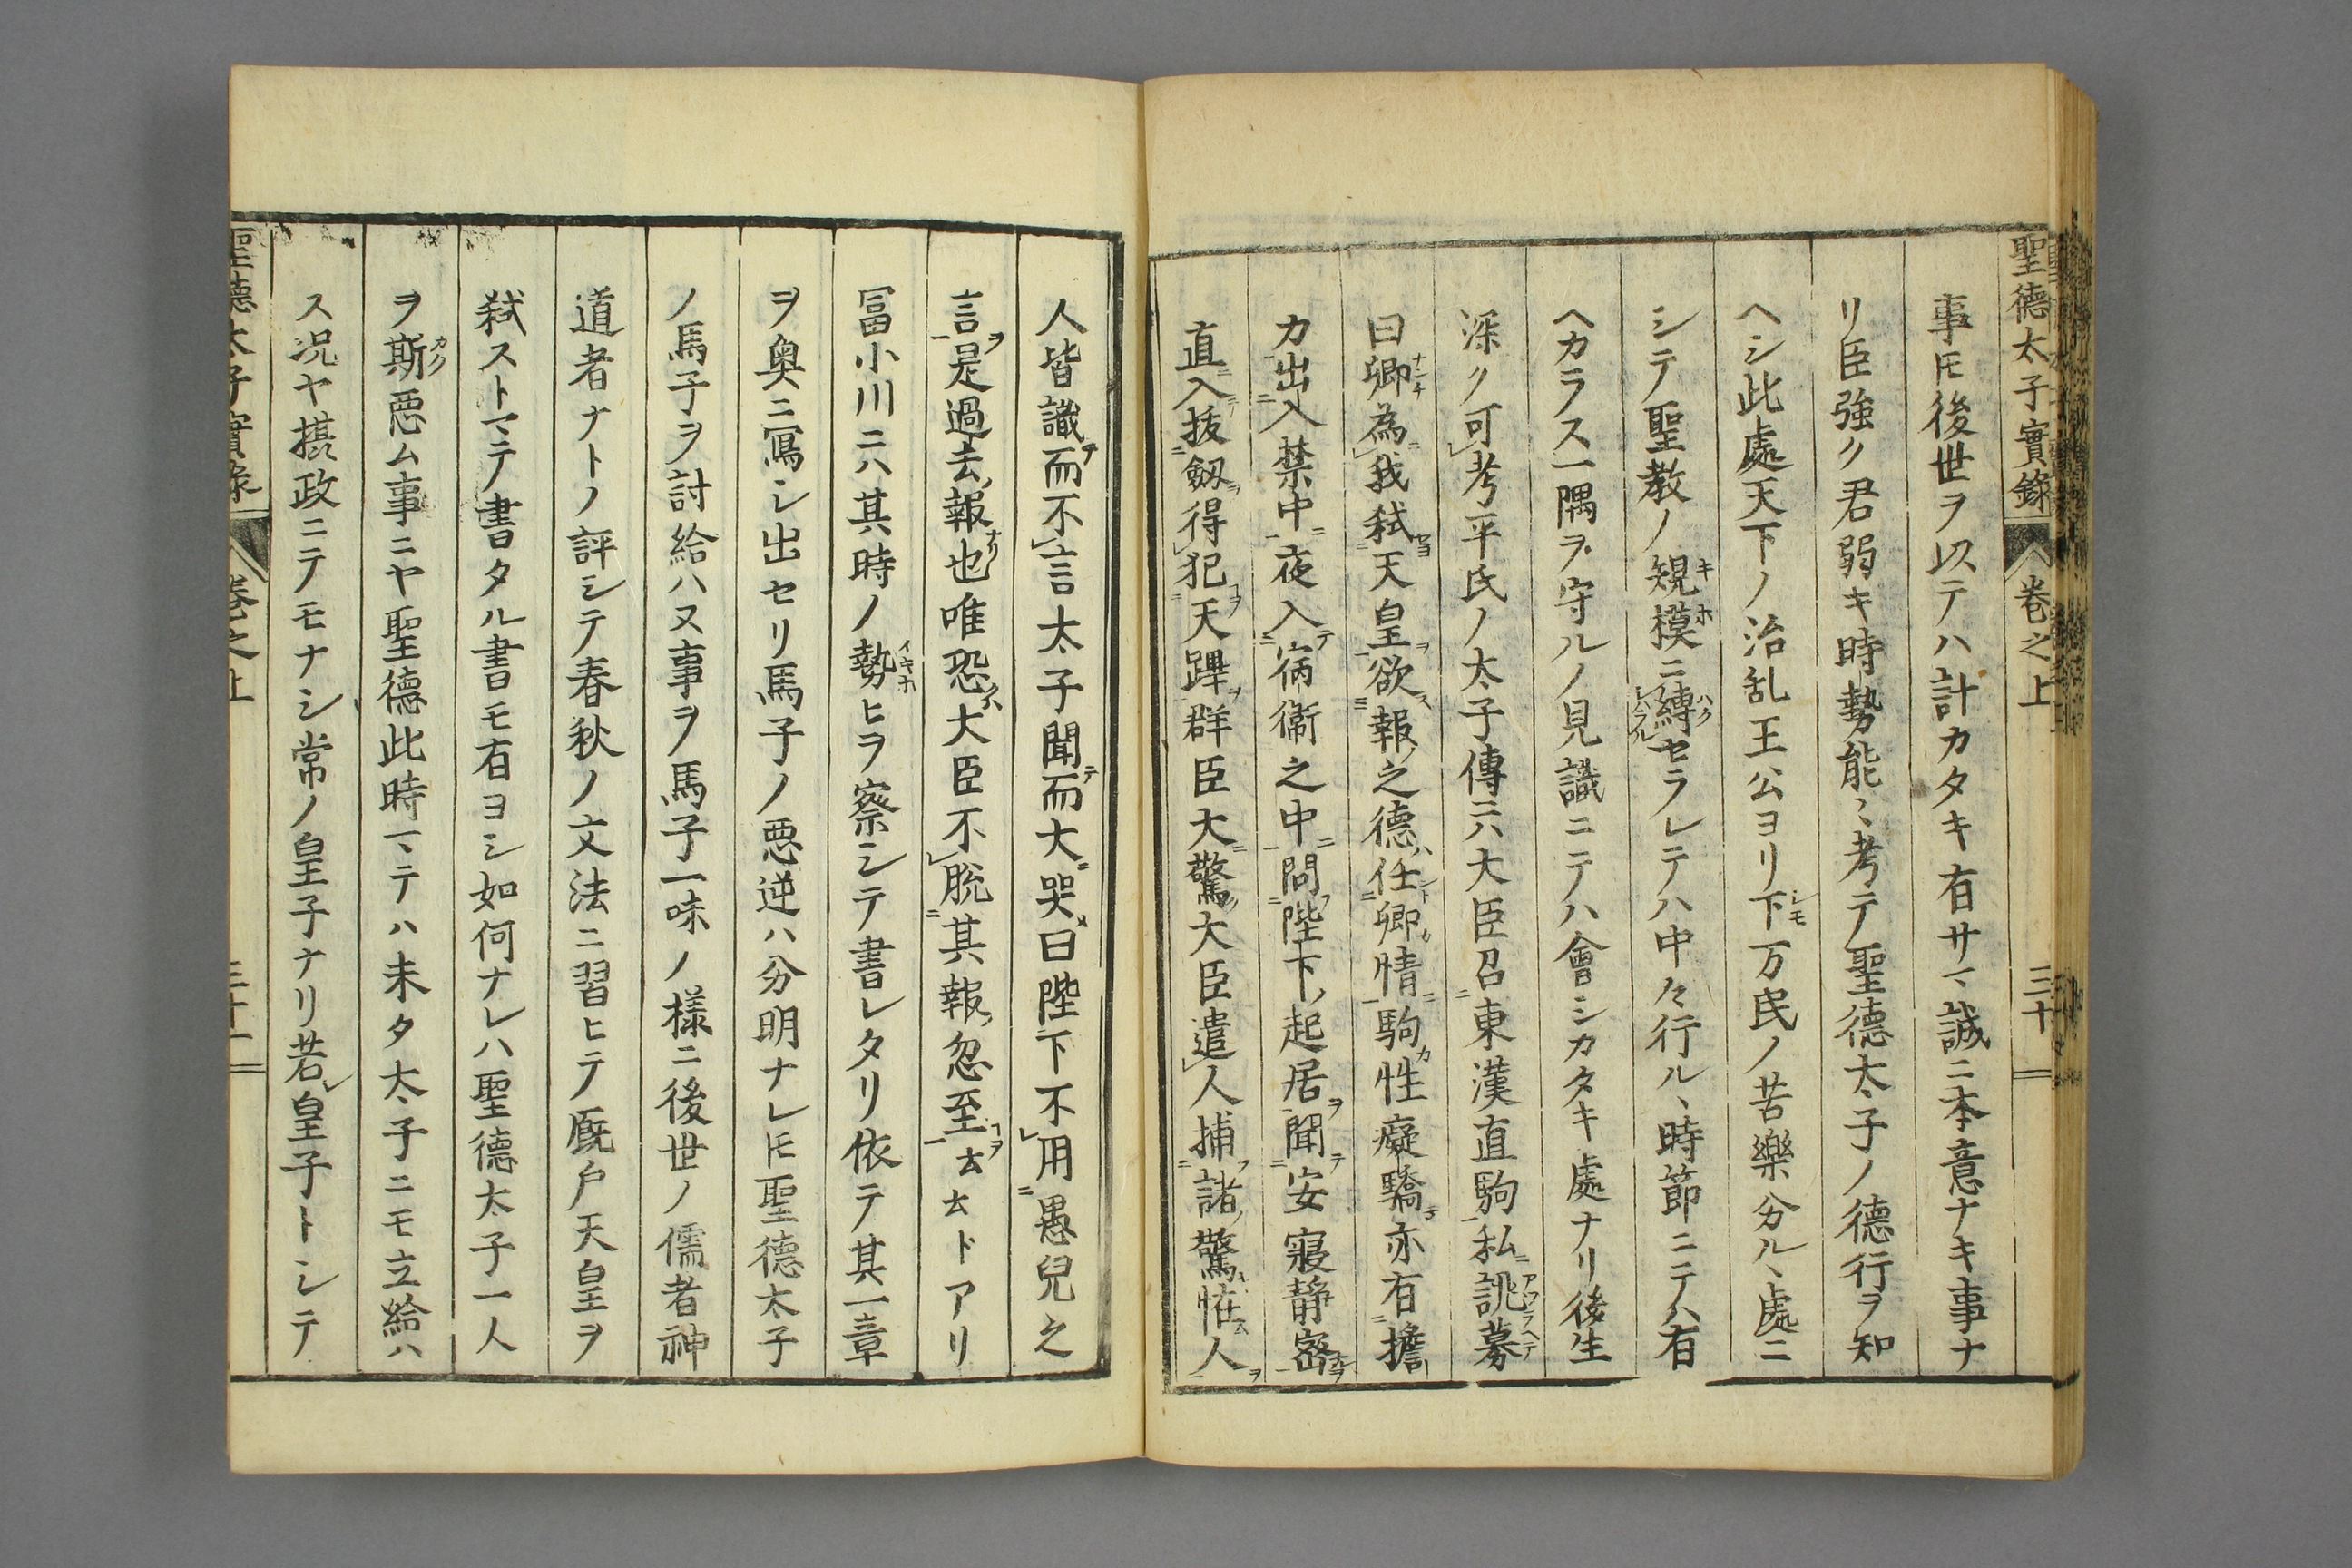 聖德太子實錄 卷之上 三十
事𪜈後世ヲ以テハ計カタキ有サマ誠ニ本意ナキ事ナ
リ臣強ク君弱キ時勢能〻考テ聖德太子ノ德行ヲ知
ヘシ此處天下ノ治乱王公ヨリ下万民ノ苦樂分ル、處ニ
シテ聖教ノ規模ニ縛セラレテハ中々行ル、時節ニテハ有
ヘカラス一隅ヲ守ルノ見識ニテハ會シカタキ處ナリ後生
深ク可考平氏ノ太子傳云ハ大臣召東漢直駒私誂募
曰卿為我弑天皇欲報之德任卿情駒性癡驕亦有擔
力出入禁中夜入病衞之中問陛下起居聞安寢静密
直入拔劔得犯天蹕群臣大驚大臣遣人捕諸驚怪人
人皆識而不言太子聞而大哭曰陛下不用愚兒之
言是過去報也唯恐大臣不脫其報忽至云云トアリ
冨小川ニハ其時ノ勢ヒヲ察シテ書レタリ依テ其一章
ヲ奥ニ寫シ出セリ馬子ノ悪逆ハ分明ナレ𪜈聖德太子
ノ馬子ヲ討給ハヌ事ヲ馬子一味ノ様ニ後世ノ儒者神
道者ナトノ評シテ春秋ノ文法ニ習ヒテ厩戸天皇ヲ
弑ストマテ書タル書モ有ヨシ如何ナレハ聖德太子一人
ヲ斯悪ム事ニヤ聖德此時マテハ未タ太子ニモ立給ハ
ス况ヤ摂政ニテモナシ常ノ皇子ナリ若皇子トシテ
聖德太子實錄 卷之上 三十一